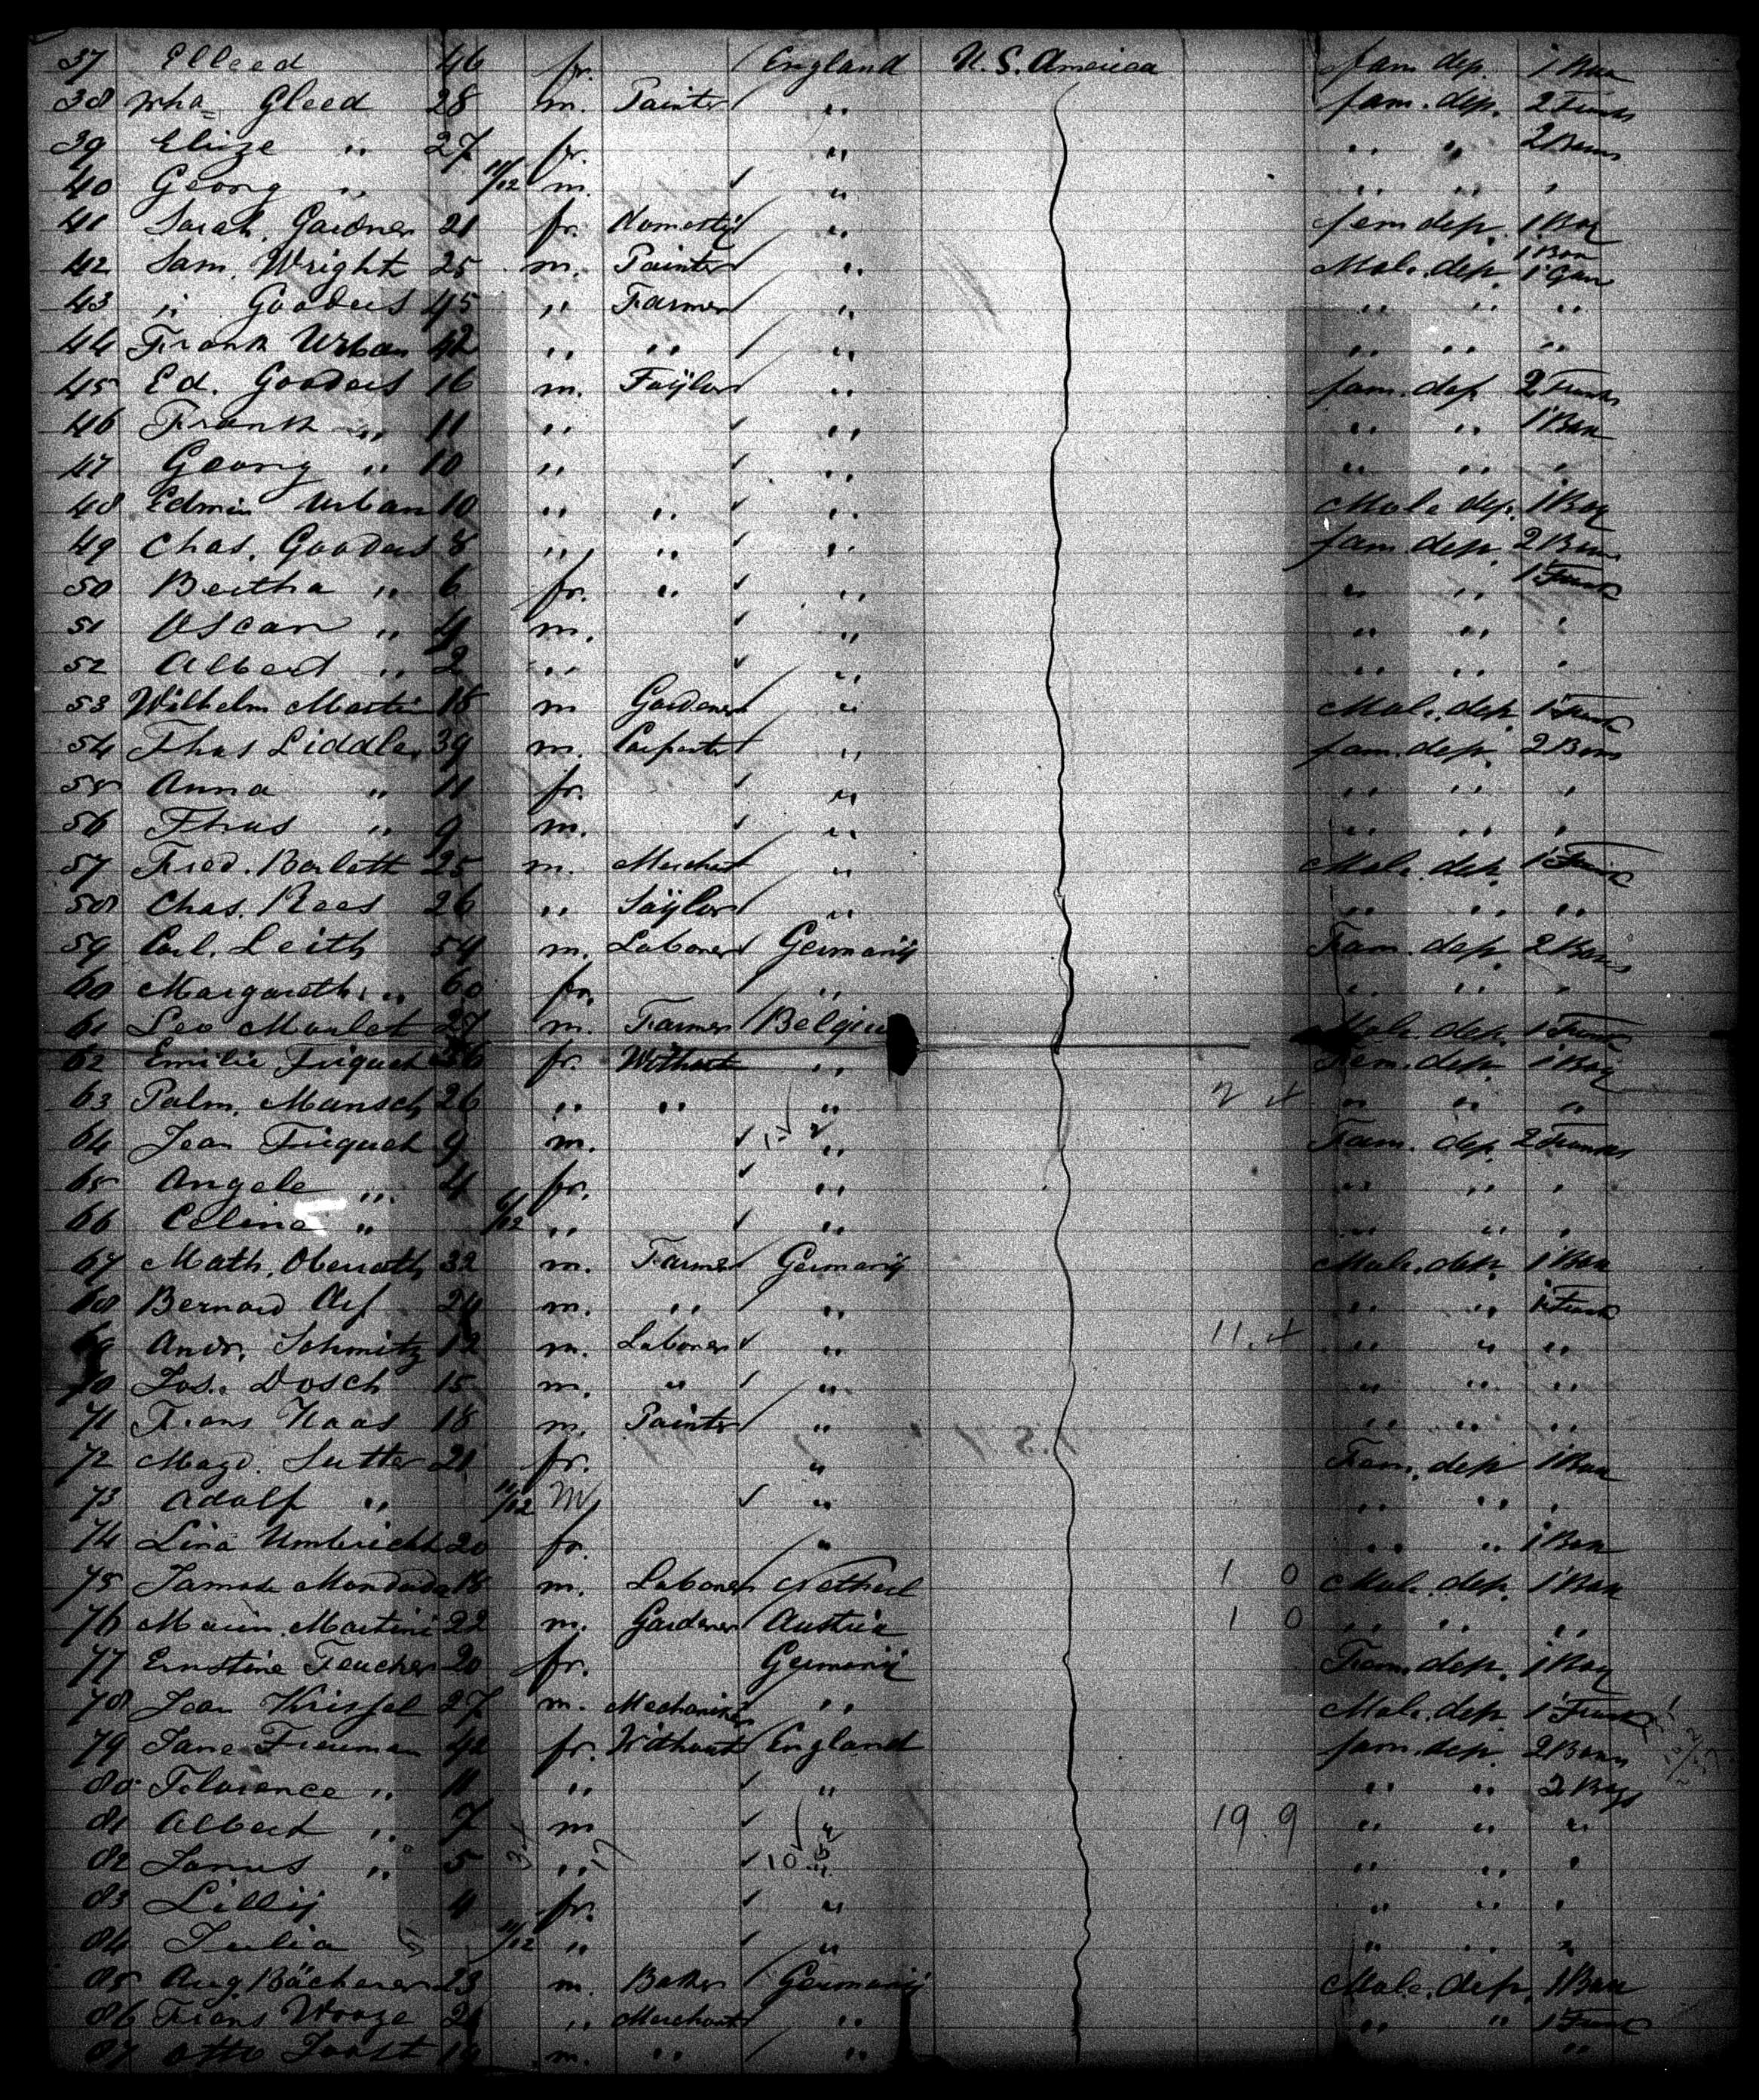 37 Elleed 46 fr. England U. S. America fam dep. 1 Box
38 Gleed 28 m. Painter " fam. dep. 2 Trunks
39 Elize " 27 fr. " " " 2 Boxes
40 Georg " 11/12 m. " " " "
41 Sarah. Gardner 21 fr. Domestic " fem dep. 1 Bag
42 Sam. Wright 25 m. Painter " Male. dep. 1 Box 1 Gun
43 " 45 " Farmer " " " "
44 Frank Urban 42 " " " " " "
45 Ed. 16 m. Taylor " fam. dep 2 Trunks
46 Frank " 11 " " " " 1 Box
47 Georg " 10 " " " " "
48 Edmin Urban 10 " " " Male dep. 1 Bag
49 Chas. 8 " " " fam dep. 2 Boxes
50 Bertha " 6 fr. " " " " 1 Trunk
51 Oscar " 4 m. " " " "
52 Albert " 2 " " " " "
53 Wilhelm Martin 18 m Gardener " Male. dep 1 Trunk
54 Thos Liddler 39 m. Carpenter " fam. dep. 2 Boxes
55 Anna " 11 fr. " " " "
56 Thos " 9 m. " " " "
57 Fred. Barlett 25 m. Merchant " Male. dep. 1 Trunk
58 Chas. Rees 26 " Taylor " " " "
59 Carl. Leith 54 m. Laborer Germany Fam. dep. 2 Boxes
60 Margareth. " 60 fr. " " " "
61 Leo Morlet 27 m. Farmer Belgium Male. dep. 1 Trunk
62 Emilie Triquet 36 fr. Without " Fem. dep. 1 Bag
63 Palm. Mansch 26 " " " 2 4 " " "
64 Jean Triquet 9 m. " Fam. dep. 2 Trunks
65 Angele " 4 fr. " " " "
66 Celina " 6/12 " " " " "
67 Math. Oberroth 32 m. Farmer Germany Male. dep. 1 Box
68 Bernard 24 m. " " " " 1 Trunk
69 Andr. Schmitz 12 m. Laborer " 11. 4 " " "
70 Jos. Dosch 15 m. " " " " "
71 Frans Haas 18 m. Painter " " " "
72 Magd. Sutter 21 fr. " Fam. dep 1 Box
73 Adolf " 11/12 M " " " "
74 Lina Umbricht 20 fr. " " " 1 Box
75 18 m. Laborer Netherl 1 0 Male. dep. 1 Box
76 Martini 22 m. Gardener Austria 1 0 " " "
77 Ernstine Teucher 20 fr. Germany Fam. dep. 1 Bag
78 Jean Krissel 27 m. Mechaniker " Male. dep 1 Trunk
79 Jane Freeman 42 fr. Without England fam. dep 2 Boxes
80 Florence " 11 " " " " 2 Bags
81 Albert " 7 m " 19. 9 " " "
82 " 5 " " " " "
83 Lilly 4 fr. " " " "
84 Julia 11/12 " " " " "
85 Aug. Bächerer 23 m. Baker Germany Male. dep. 1 Box
86 Frans 21 " Merchant " " " 1 Trunk
87 Otto Joost 19 m. " " "